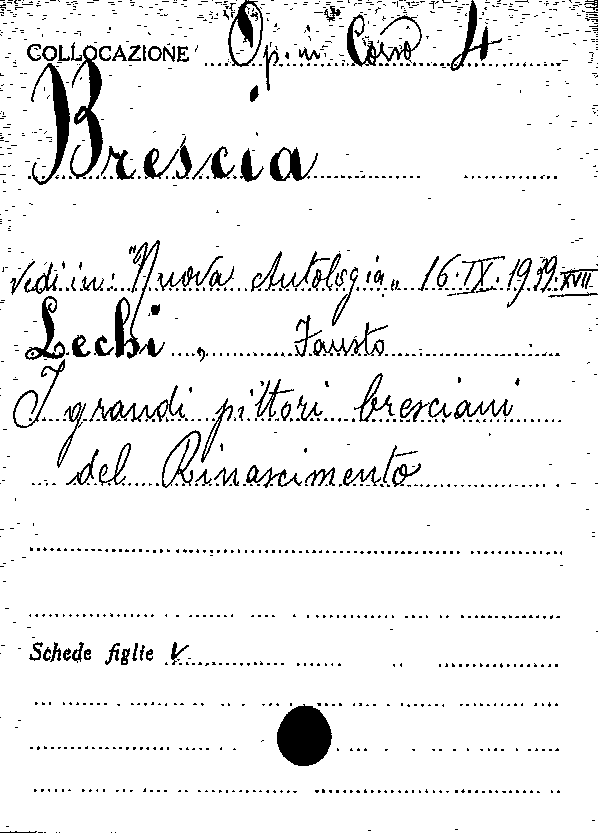 COLLOCAZIONE Op. in Corso 4
Brescia
vedi in: "Nuova Antologia„ 16.IX.1939.XVII
Lechi, Fausto
I grandi pittori bresciani
del Rinascimento
Schede figlie V